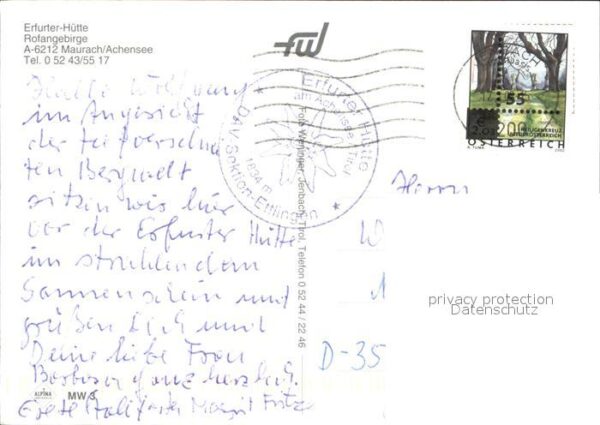 Erfurter-Hütte
Rofangebirge
A-6212 Maurach/Achensee
Tel. 0 52 43/55 17
Hallo Wolfgang
im Angesicht
der tiefverschnei
ten Bergwelt
sitzen wir hier
vor der Erfurter Hütte
im strahlendem
Sonnenschein und
grüßen Dich und
Deine liebe Frau
Barbara ganz herzlich.
Fritz
ALPINA
MW 3
fwl
Erfurter-Hütte
am Achensee Tirol
1834 m
DAV-Sektion-Ettlingen
Foto Weninger, Jenbach, Tirol, Telefon 0 52 44 / 22 46
55
200
HEILIGENKREUZ
NIEDERÖSTERREICH
ÖSTERREICH
Herrn
W
D-35
privacy protection
Datenschutz